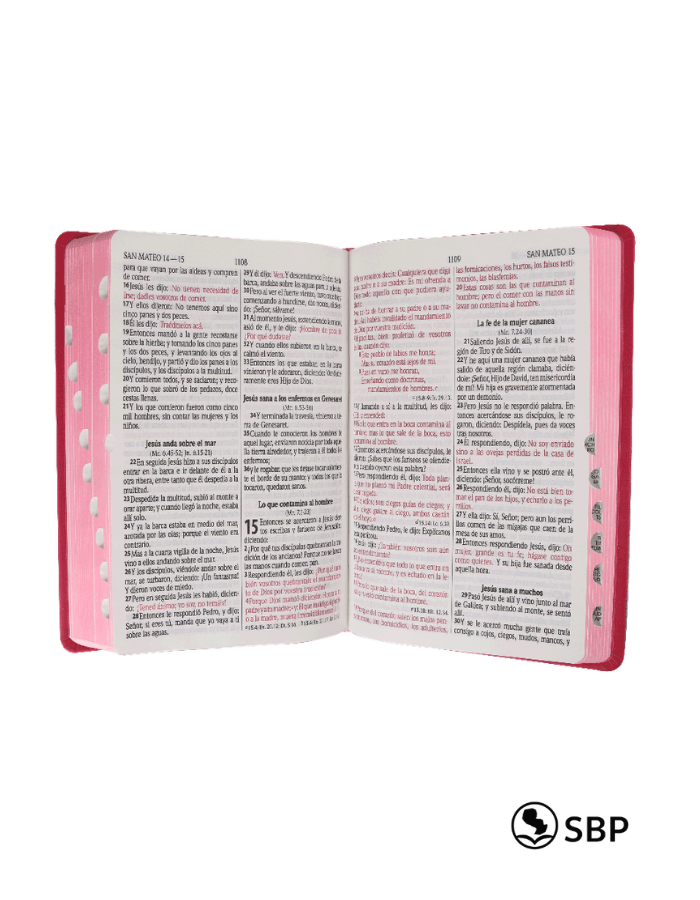 SAN MATEO 14—15
1108
para que vayan por las aldeas y compren
de comer.
16Jesús les dijo: No tienen necesidad de
irse; dadles vosotros de comer.
17Y ellos dijeron: No tenemos aquí sino
cinco panes y dos peces.
18Él les dijo: Traédmelos acá.
19Entonces mandó a la gente recostarse
sobre la hierba; y tomando los cinco panes
y los dos peces, y levantando los ojos al
cielo, bendijo, y partió y dio los panes a los
discípulos, y los discípulos a la multitud.
20Y comieron todos, y se saciaron; y reco-
gieron lo que sobró de los pedazos, doce
cestas llenas.
21Y los que comieron fueron como cinco
mil hombres, sin contar las mujeres y los
niños.
Jesús anda sobre el mar
(Mr. 6.45-52; Jn. 6.15-21)
22En seguida Jesús hizo a sus discípulos
entrar en la barca e ir delante de él a la
otra ribera, entre tanto que él despedía a la
multitud.
23Despedida la multitud, subió al monte a
orar aparte; y cuando llegó la noche, estaba
allí solo.
24Y ya la barca estaba en medio del mar,
azotada por las olas; porque el viento era
contrario.
25Mas a la cuarta vigilia de la noche, Jesús
vino a ellos andando sobre el mar.
26Y los discípulos, viéndole andar sobre el
mar, se turbaron, diciendo: ¡Un fantasma!
Y dieron voces de miedo.
27Pero en seguida Jesús les habló, dicien-
do: ¡Tened ánimo; yo soy, no temáis!
28Entonces le respondió Pedro, y dijo:
Señor, si eres tú, manda que yo vaya a ti
sobre las aguas.
29Y él dijo: Ven. Y descendiendo Pedro de la
barca, andaba sobre las aguas para ir a Jesús.
30Pero al ver el fuerte viento, tuvo miedo; y
comenzando a hundirse, dio voces, dicien-
do: ¡Señor, sálvame!
31Al momento Jesús, extendiendo la mano,
asió de él, y le dijo: ¡Hombre de poca fe!
¿Por qué dudaste?
32Y cuando ellos subieron en la barca, se
calmó el viento.
33Entonces los que estaban en la barca
vinieron y le adoraron, diciendo: Verdade-
ramente eres Hijo de Dios.
Jesús sana a los enfermos en Genesaret
(Mr. 6.53-56)
34Y terminada la travesía, vinieron a tie-
rra de Genesaret.
35Cuando le conocieron los hombres de
aquel lugar, enviaron noticia por toda aque-
lla tierra alrededor, y trajeron a él todos los
enfermos;
36y le rogaban que les dejase tocar solamen-
te el borde de su manto; y todos los que lo
tocaron, quedaron sanos.
Lo que contamina al hombre
(Mr. 7.1-23)
15 Entonces se acercaron a Jesús cier-
tos escribas y fariseos de Jerusalén,
diciendo:
2¿Por qué tus discípulos quebrantan la tra-
dición de los ancianos? Porque no se lavan
las manos cuando comen pan.
3Respondiendo él, les dijo: ¿Por qué tam-
bién vosotros quebrantáis el mandamien-
to de Dios por vuestra tradición?
4Porque Dios mandó diciendo: Honra a tu
padre y a tu madre; y: El que maldiga al padre
o a la madre, muera irremisiblemente.
1109
SAN MATEO 15
vosotros decís: Cualquiera que diga
a su padre o a su madre: Es mi ofrenda a
Dios todo aquello con que pudiera ayu-
darte,
no ha de honrar a su padre o a su ma-
dre. Así habéis invalidado el mandamiento
de Dios por vuestra tradición.
Hipócritas, bien profetizó de vosotros
Isaías, cuando dijo:
Este pueblo de labios me honra;
Mas su corazón está lejos de mí.
Pues en vano me honran,
Enseñando como doctrinas,
mandamientos de hombres.
15.8-9: Is. 29.13.
Y llamando a sí a la multitud, les dijo:
Oíd, y entended:
No lo que entra en la boca contamina al
hombre; mas lo que sale de la boca, esto
contamina al hombre.
Entonces acercándose sus discípulos, le
dijeron: ¿Sabes que los fariseos se ofendie-
ron cuando oyeron esta palabra?
Pero respondiendo él, dijo: Toda plan-
ta que no plantó mi Padre celestial, será
desarraigada.
Dejadlos; son ciegos guías de ciegos; y
si el ciego guiare al ciego, ambos caerán
en el hoyo.
15.14: Lc. 6.39.
Respondiendo Pedro, le dijo: Explícanos
esta parábola.
Jesús dijo: ¿También vosotros sois aún
sin entendimiento?
¿No entendéis que todo lo que entra en
la boca va al vientre, y es echado en la le-
trina?
Pero lo que sale de la boca, del corazón
sale; y esto contamina al hombre.
15.18: Mt. 12.34.
Porque del corazón salen los malos pen-
samientos, los homicidios, los adulterios,
las fornicaciones, los hurtos, los falsos testi-
monios, las blasfemias.
20Estas cosas son las que contaminan al
hombre; pero el comer con las manos sin
lavar no contamina al hombre.
La fe de la mujer cananea
(Mr. 7.24-30)
21Saliendo Jesús de allí, se fue a la re-
gión de Tiro y de Sidón.
22Y he aquí una mujer cananea que había
salido de aquella región clamaba, dicién-
dole: ¡Señor, Hijo de David, ten misericordia
de mí! Mi hija es gravemente atormentada
por un demonio.
23Pero Jesús no le respondió palabra. En-
tonces acercándose sus discípulos, le ro-
garon, diciendo: Despídela, pues da voces
tras nosotros.
24El respondiendo, dijo: No soy enviado
sino a las ovejas perdidas de la casa de
Israel.
25Entonces ella vino y se postró ante él,
diciendo: ¡Señor, socórreme!
26Respondiendo él, dijo: No está bien to-
mar el pan de los hijos, y echarlo a los pe-
rrillos.
27Y ella dijo: Sí, Señor; pero aun los perri-
llos comen de las migajas que caen de la
mesa de sus amos.
28Entonces respondiendo Jesús, dijo: Oh
mujer, grande es tu fe; hágase contigo
como quieres. Y su hija fue sanada desde
aquella hora.
Jesús sana a muchos
29Pasó Jesús de allí y vino junto al mar
de Galilea; y subiendo al monte, se sentó
allí.
30Y se le acercó mucha gente que traía
consigo a cojos, ciegos, mudos, mancos, y
SBP